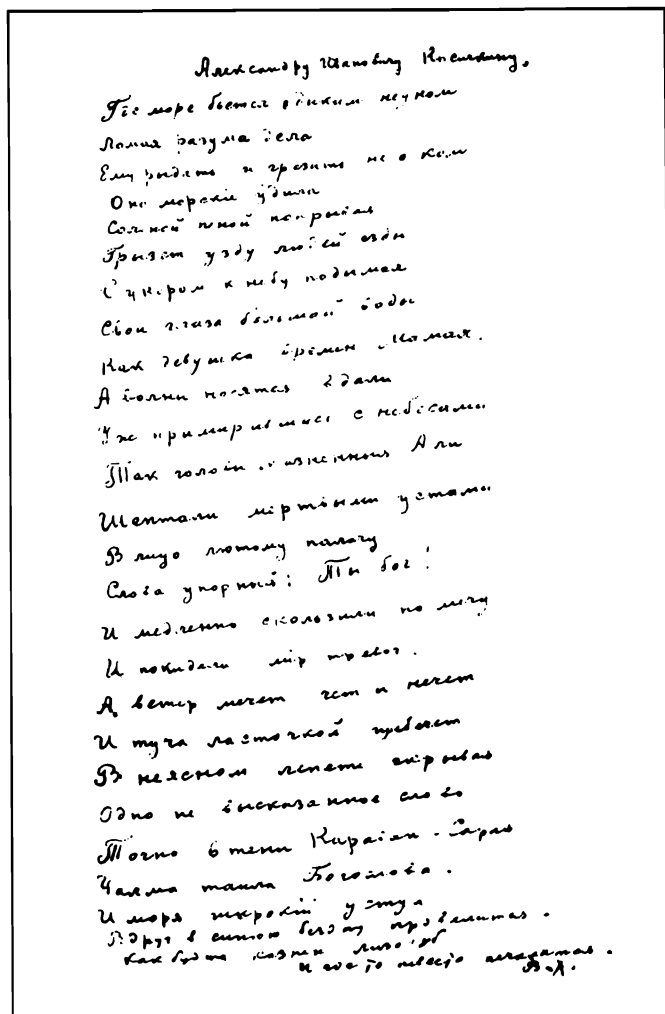 Александру Ивановичу Косичкину.
Где море бьется диким неуком
Ломая разума дела
Ему рыдать и грезить не о ком
Оно морские удила
Соленой пеной покрывая
Грызет узду людей езды
С укором к небу подымая
Свои глаза большой воды
Как девушка времен Мамая.
А волны носятся вдали
Уже примирившись с небесами
Так головы казненных Али
Шептали мёртвыми устами
В лицо лютому палачу
Слова упорный: Ты бог!
И медленно скользили по мечу
И покидали мір тревог.
А ветер мечет чет и нечет
И туча ласточкой щебечет
В неясном лепете скрывая
Одно не высказанное слово
Точно в тени Караван-Сарая
Чалма таила Боголова.
И моря широкій уступ
Вдруг в синюю бездну провалится.
Как будто казни
И где то место печалится.
В.Х.